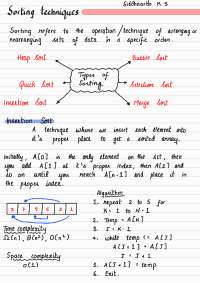 Siddhearth K S
Sorting techniques
Sorting refers to the operation/technique of arranging or
rearranging sets of data in a specific order.
Heap Sort
Bubble Sort
Types of
Sorting
Quick Sort
Selection Sort
Insertion Sort
Merge Sort
Insertion Sort
A technique where we insert each element into
it's proper place to get a sorted array.
Initially, A[0] is the only element on the list, then
you add A[1] at it's proper index, then A[2] and
so on until you reach A[n-1] and place it in
the proper index.
Algorithm:
1. repeat 2 to 5 for
K = 1 to N-1
2. Temp = A[K]
3. J = K-1
4. while temp <= A[J]
A[J+1] = A[J]
J = J-1
5. A[J+1] = temp
6. Exit.
Time complexity
Space complexity
O(1)